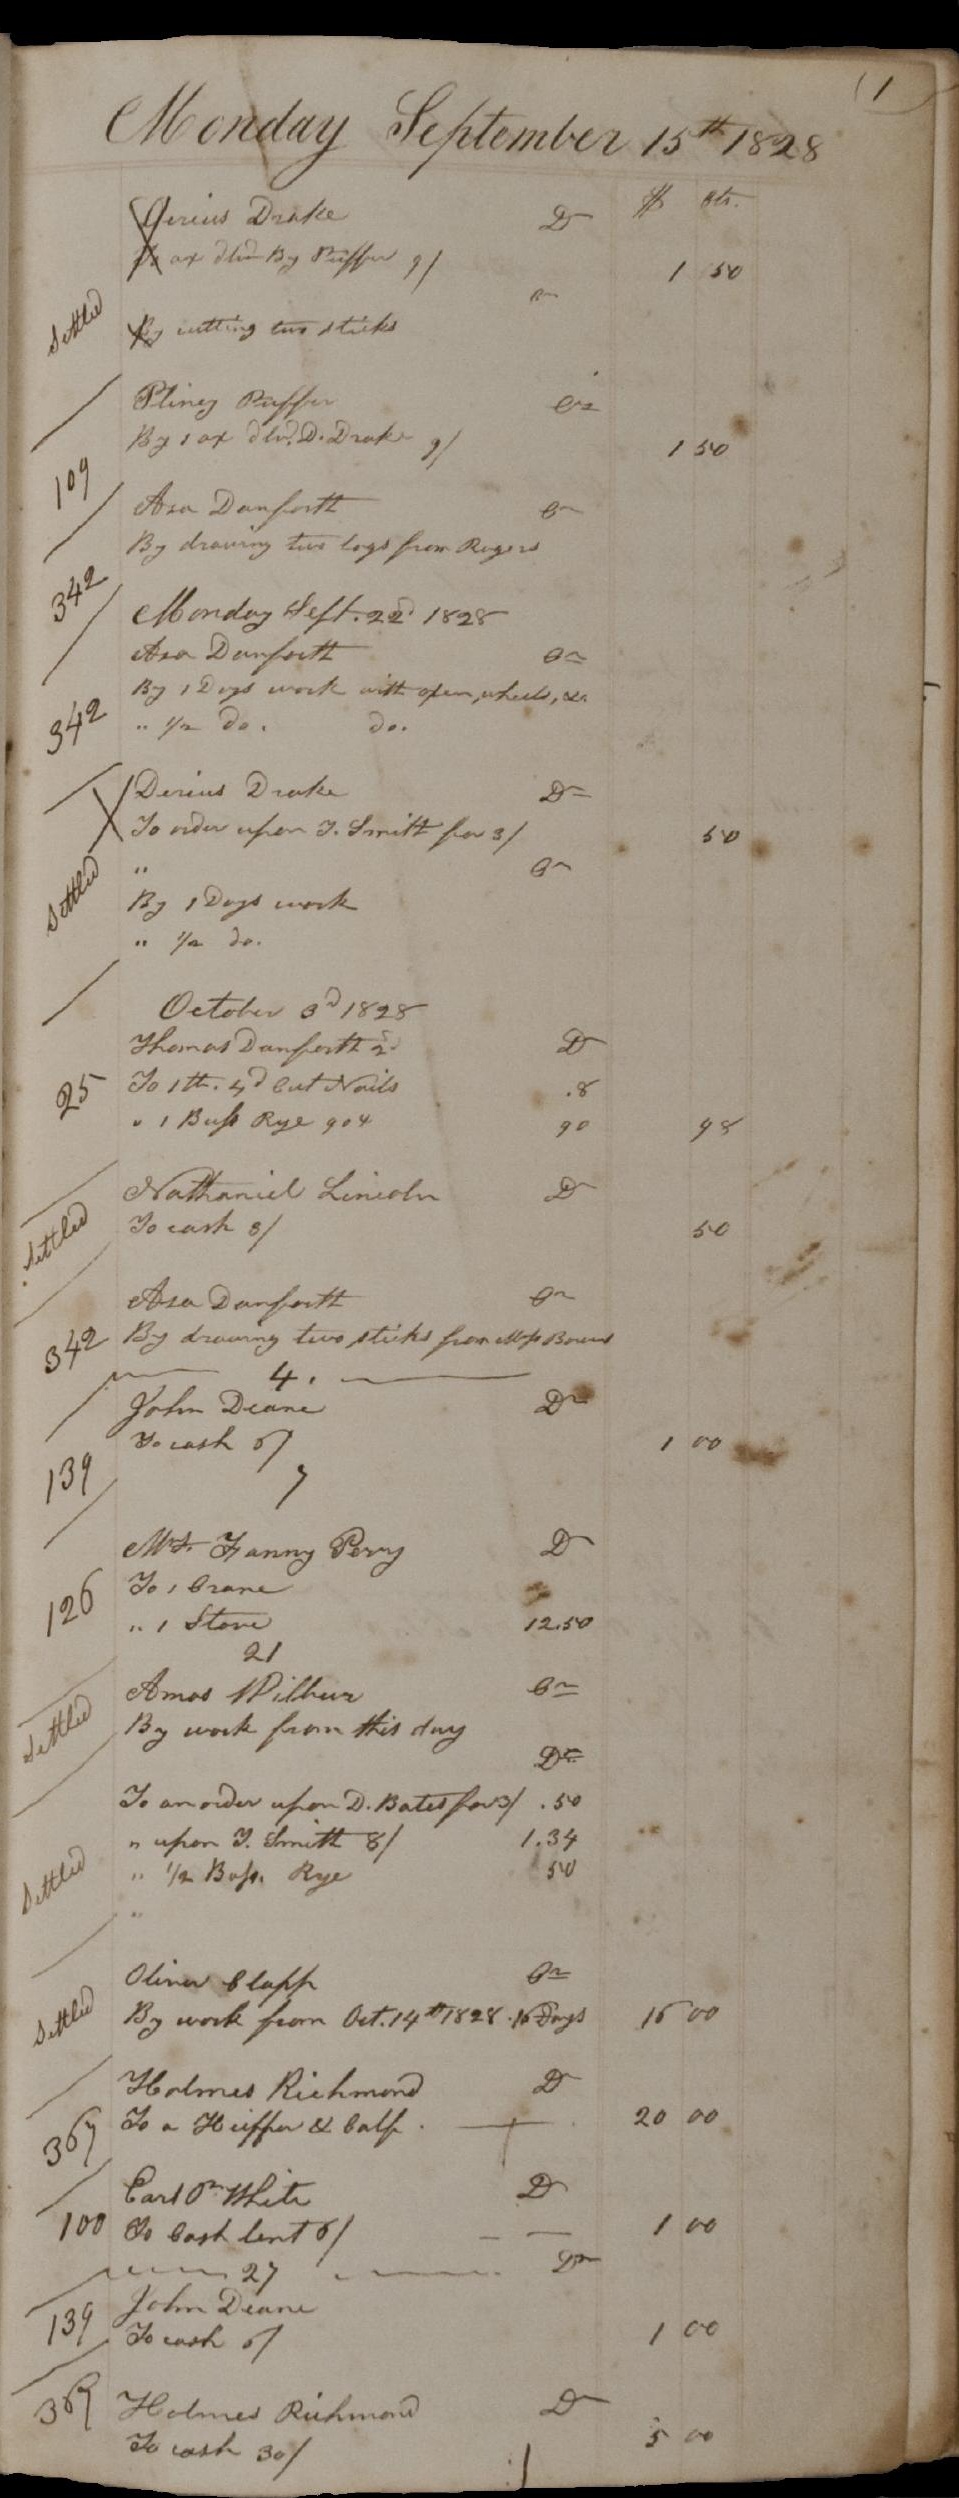 (1
Monday September 15th 1828
$ cts.
Derius Drake Dr
To ax dlvd By Puffer 9/ 1 50
Cr
Settled
By cutting two sticks
Pliney Puffer Cr
By 1 ax dlvd. D. Drake 9/ 1 50
109
Asa Danforth Cr
By drawing two logs from Rogers
342
Monday Sept. 22d 1828
Asa Danforth Cr
By 1 Days work with oxen, wheels, &c.
342 " 1/2 do. do.
Derius Drake Dr
To order upon T. Smith for 3/ 50
" Cr
Settled By 1 Days work
" 1/2 do.
October 3d 1828
Thomas Danforth 2d Dr
25 To 1 lb. 4d Cut Nails .8
" 1 Bush Rye 90 98
Nathaniel Lincoln Dr
Settled To cash 3/ 50
Asa Danforth Cr
342 By drawing two sticks from
4.
John Deane Dr
To cash 6/ 1 00
139
7
Mrs. Fanny Perry Dr
126 To 1 Crane
" 1 Stove 12.50
21
Amos Wilbur Cr
Settled By work from this day
Dr
To an order upon D. Bates for 3/ .50
" upon T. Smith 8/ 1.34
Settled " 1/2 Bush. Rye 50
"
Oliver Clapp Cr
Settled By work from Oct. 14th 1828. 16 Days 16 00
Holmes Richmond Dr
367 To a Heiffer & Calf. 20 00
Earl White Dr
100 To Cash lent 6/ 1 00
27 Dr
John Deane
139 To cash 6/ 1 00
367 Holmes Richmond Dr
To cash 30/ 5 00